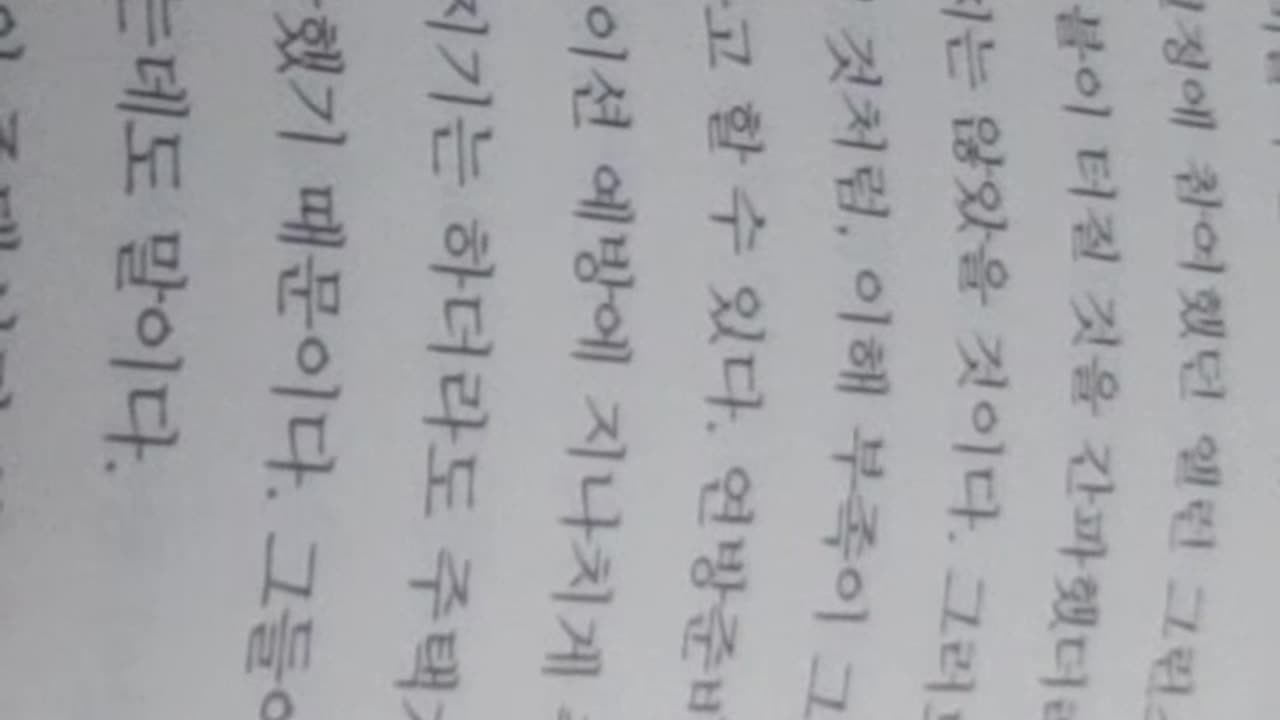 정에 참여했던 앨런 그린
품이 터질 것을 간파했더
지는 않았을 것이다. 그러
것처럼, 이해 부족이 그
고 할 수 있다. 연방준비
이션 예방에 지나치게
지기는 하더라도 주택
했기 때문이다. 그들
는데도 말이다.